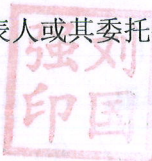 表人或其委托
刘国
强印